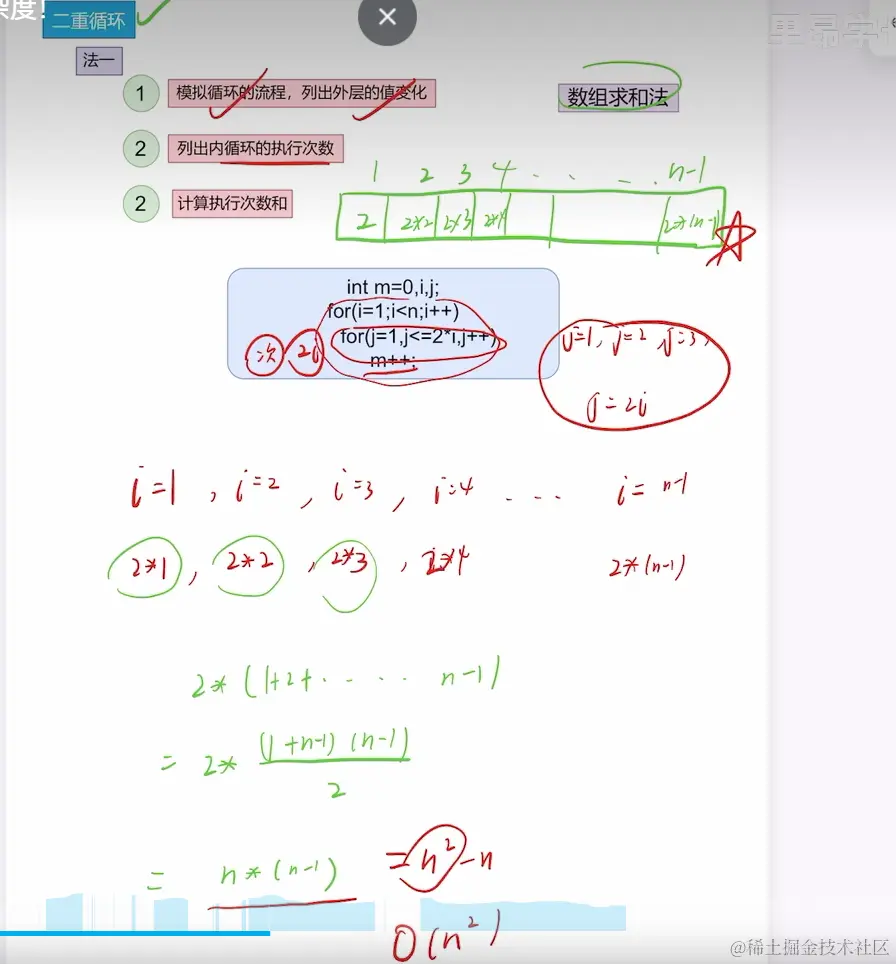 深度!
二重循环
法一
1 模拟循环的流程，列出外层的值变化
数组求和法
2 列出内循环的执行次数
2 计算执行次数和
1 2 3 4 . . _ . n-1
2 2*2 2*3 2*4 2*(n-1)
int m=0,i,j;
for(i=1;i<n;i++)
for(j=1,j<=2*i,j++)
m++;
次 2i
j=1, j=2, j=3,
j=2i
i=1, i=2, i=3, i=4 ... i=n-1
2*1, 2*2, 2*3, 2*4 2*(n-1)
2*(1+2+..... n-1)
= 2* (1+n-1)(n-1)
2
= n*(n-1) = n²-n
O(n²)
@稀土掘金技术社区